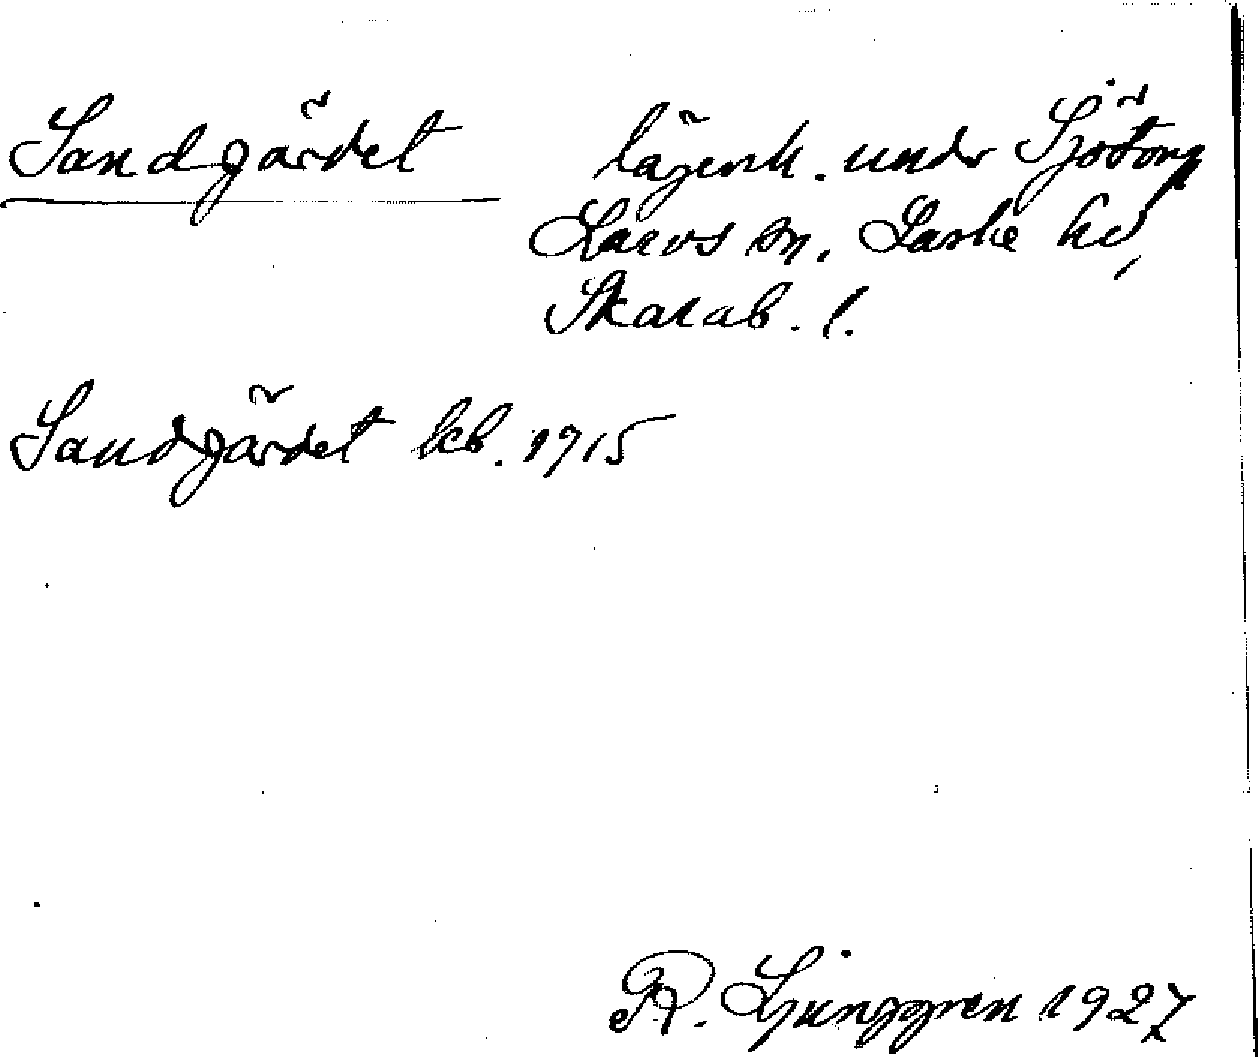 Sandgärdet lägenh. under Sjötorp
Larvs sn, Laske hd,
Skarab. l.
Sandgärdet kb. 1915
R. Ljunggren 1927